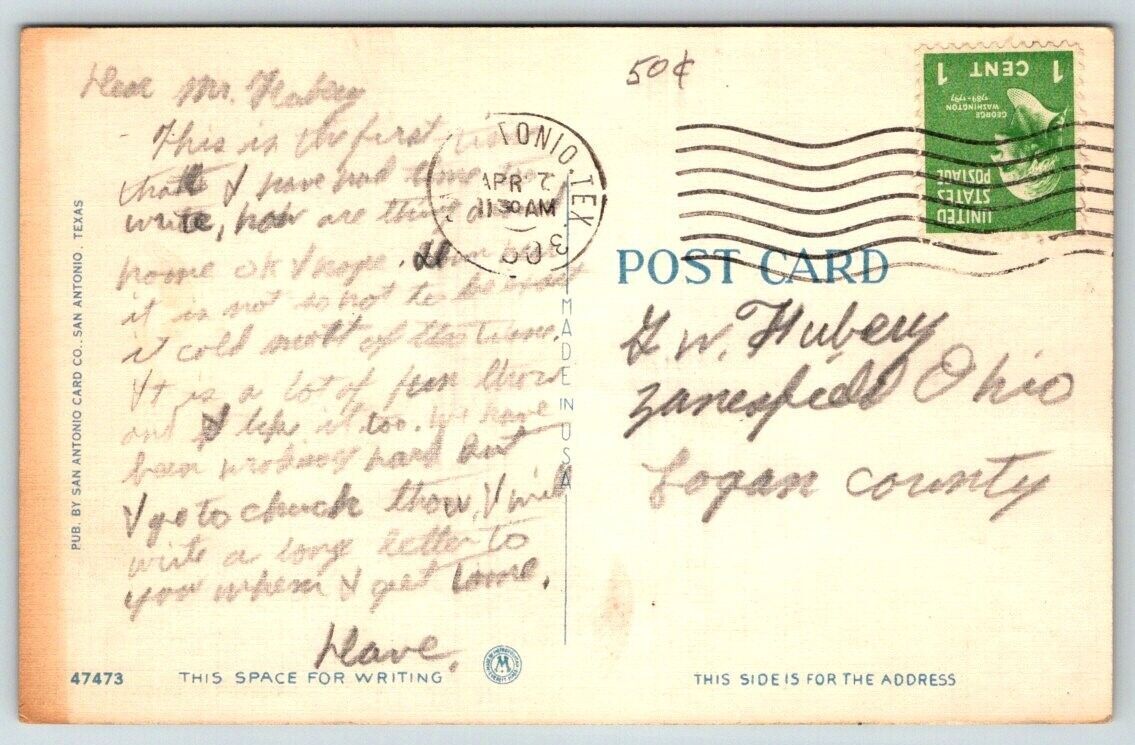 Dear Mr. Hubery
This is the first time
that I have had time to
write, how are things around
home OK I hope. down here
it is not so hot to be exact
it cold most of the time.
It is a lot of fun thow
and I like it too. We have
been working hard but
I go to church thow, I will
write a long letter to
you when I get time.
Dave.
50¢
TONIO. TEX.
APR 7
11 30 AM
UNITED
STATES
POSTAGE
GEORGE
WASHINGTON
1789-1797
1 CENT 1
POST CARD
G. W. Hubery
Zanesfield Ohio
Logan County
PUB. BY SAN ANTONIO CARD CO., SAN ANTONIO, TEXAS
MADE IN USA
47473
THIS SPACE FOR WRITING
THIS SIDE IS FOR THE ADDRESS